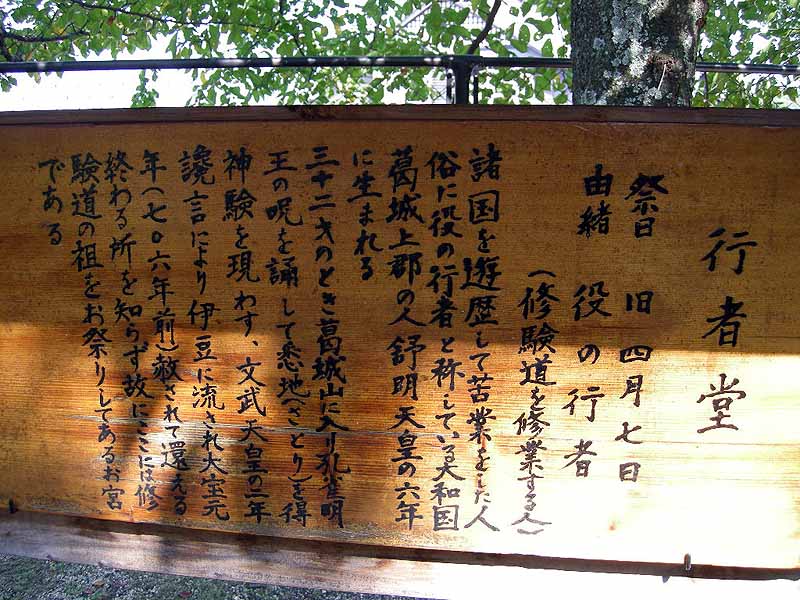 行者堂
祭日 旧四月七日
由緒 役の行者
(修験道を修業する人)
諸国を遊歴して苦業をした人
俗に役の行者と称している大和国
葛城上郡の人舒明天皇の六年
に生まれる
三十二才のとき葛城山に入り孔雀明
王の呪を誦して悉地(さとり)を得
神験を現わす、文武天皇の二年
讒言により伊豆に流され大宝元
年(七〇六年前)赦されて還える
終わる所を知らず故にここには修
験道の祖をお祭りしてあるお宮
である